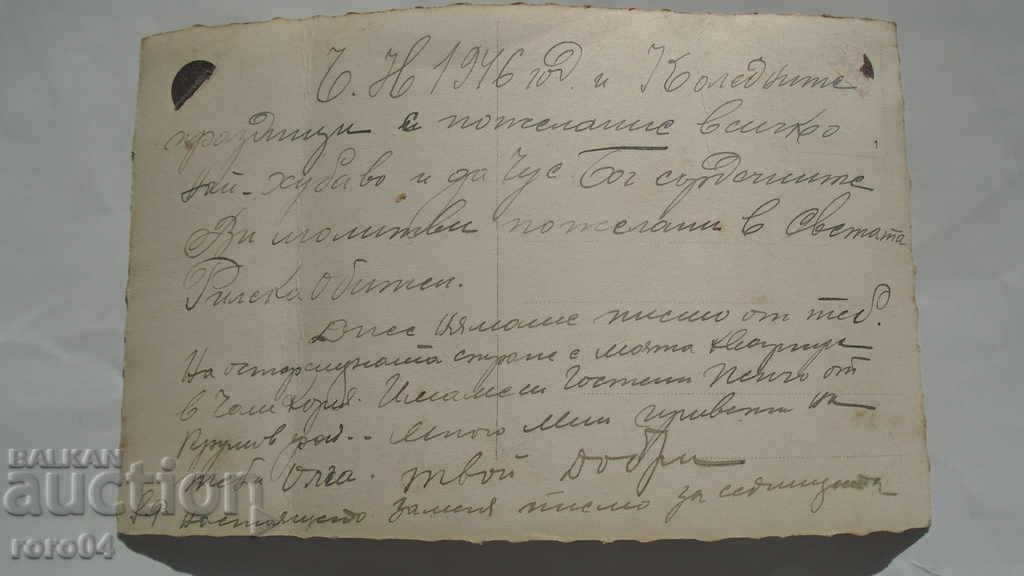 Ч. Н 1946 год. и Коледните
празници с пожелание всичко
най-хубаво и да чуе Бог сърдечните
Ви молитви пожелани в Светата
Рилска Обител.
Днес нямаше писмо от теб.
На отсрещната страна е моята квартира
в Чам Кория. Имаме си Гостени Пенчо от
град.. Много мил привети на
теб Олга. твой Добри
настоящето заменя писмо за седмицата
BALKAN
auction
roro04